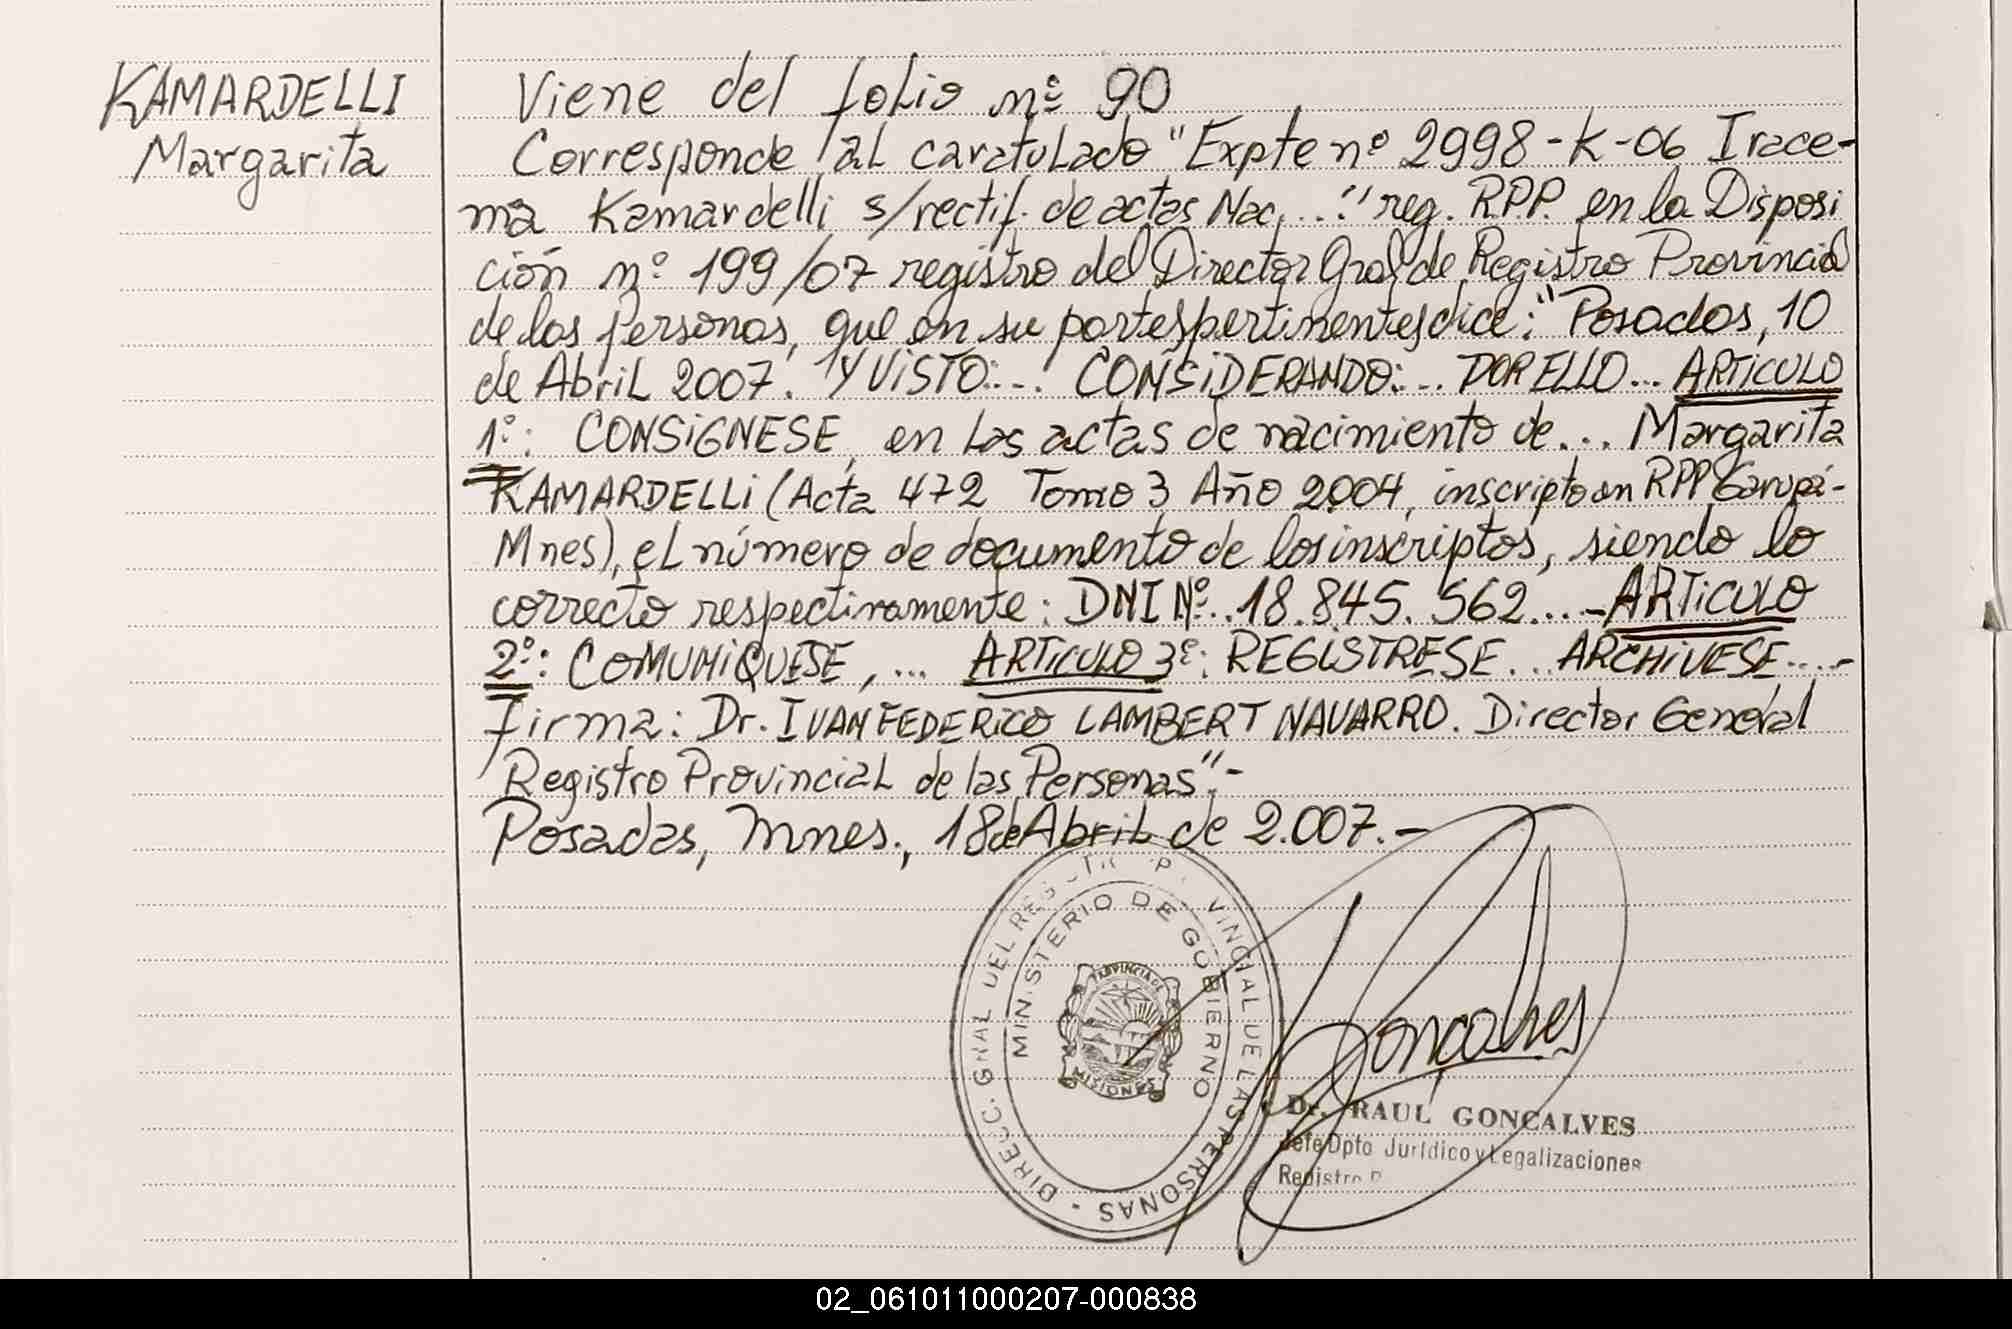 KAMARDELLI
Margarita
Viene del folio nº 90
Corresponde al caratulado "Expte nº 2998-K-06 Irace-
ma Kamardelli s/rectif. de actas Nac..." reg. R.P.P. en la Disposi
ción nº 199/07 registro del Director Gral de Registro Provincial
de las Personas, que en su partes pertinentes dice: "Posadas, 10
de Abril 2007. Y VISTO:... CONSIDERANDO:... POR ELLO... ARTICULO
1º: CONSIGNESE, en las actas de nacimiento de... Margarita
KAMARDELLI (Acta 472 Tomo 3 Año 2004, inscripto en RPP Garupá-
Mnes), el número de documento de los inscriptos, siendo lo
correcto respectivamente: DNI Nº.. 18.845.562...-ARTICULO
2º: COMUNIQUESE,... ARTICULO 3º: REGISTRESE... ARCHIVESE....-
firma: Dr. IVAN FEDERICO LAMBERT NAVARRO. Director General
Registro Provincial de las Personas".-
Posadas, Mnes., 18 de Abril de 2.007.-
DIRECC. GRAL DEL REGISTRO PROVINCIAL DE LAS PERSONAS -
MINISTERIO DE GOBIERNO
PROVINCIA DE
MISIONES
Gonçalves
Dr. RAUL GONCALVES
Jefe Dpto Jurídico y Legalizaciones
Registro
02_061011000207-000838